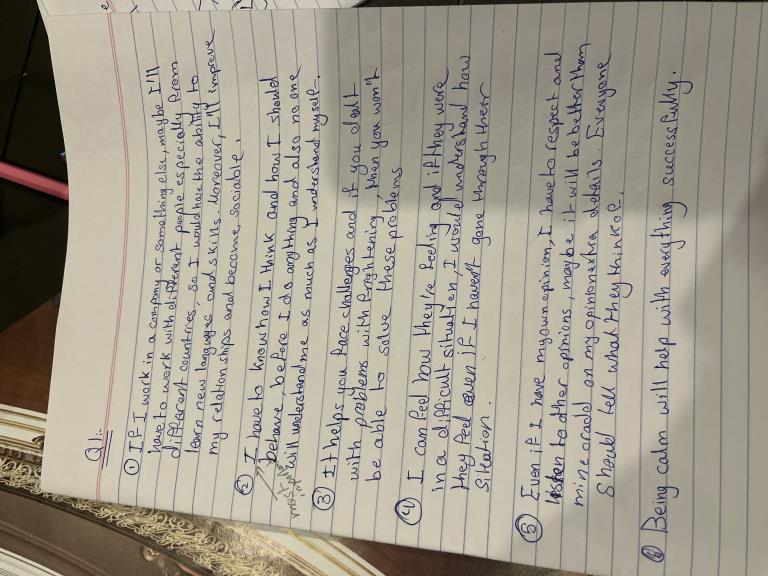 Q1:-
① If I work in a company or something else, maybe I'll
have to work with different people especially from
different countries, so I would have the ability to
learn new languages and skills. Moreover, I'll improve
my relationships and become sociable.
② I have to know how I think and how I should
behave, before I do anything and also no one
will understand me as much as I understand myself.
most
③ It helps you face challenges and if you dealt
with problems with frightening, then you won't
be able to solve these problems
④ I can feel how they're feeling and if they were
in a difficult situation, I would understand how
they feel even if I haven't gone through their
siteation.
⑤ Even if I have my own opinion, I have to respect and
listen to other opinions, maybe it will be better than
mine or add on my opinion extra details. Everyone
should tell what they think of.
⑥ Being calm will help with everything successfully.